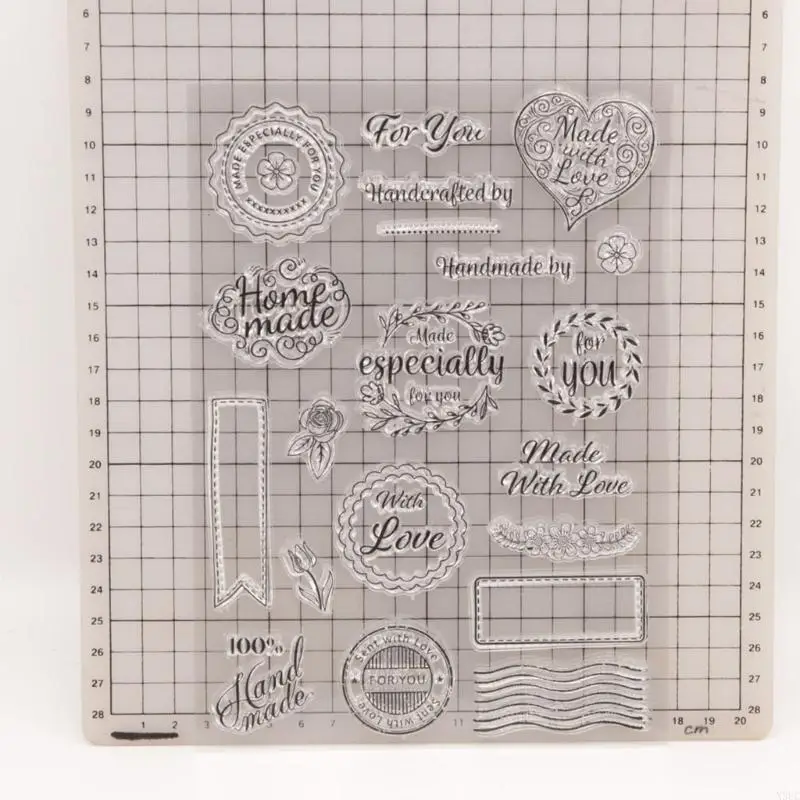 6 6
7 7
8 8
9 9
10 10
11 11
12 12
13 13
14 14
15 15
16 16
17 17
18 18
19 19
20 20
21 21
22 22
23 23
24 24
25 25
26 26
27 27
28
1 2 3 5 6 7 11 18 19 20
cm
MADE ESPECIALLY FOR YOU
xxxxxxxxxx
For You
Made
with
Love
Handcrafted by
Handmade by
Home
made
Made
especially
for you
for
you
Made
With Love
With
Love
100%
Hand
made
Sent with Love
FOR YOU
Sent with Love